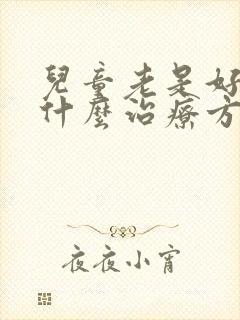 兒童老是好
什麼治療方
夜夜小宵